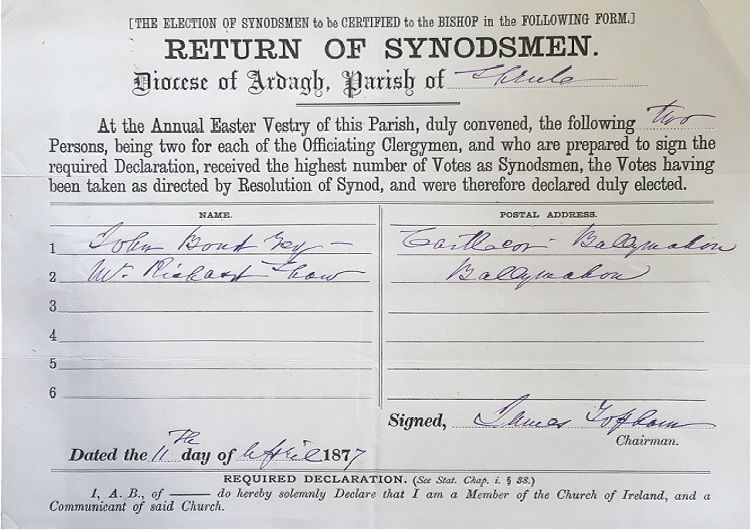 [THE ELECTION OF SYNODSMEN to be CERTIFIED to the BISHOP in the FOLLOWING FORM.]
RETURN OF SYNODSMEN.
Diocese of Ardagh, Parish of Shrule
At the Annual Easter Vestry of this Parish, duly convened, the following two
Persons, being two for each of the Officiating Clergymen, and who are prepared to sign the
required Declaration, received the highest number of Votes as Synodsmen, the Votes having
been taken as directed by Resolution of Synod, and were therefore declared duly elected.
NAME. POSTAL ADDRESS.
1 John Bond Esq – Castlecor Ballymahon
2 Mr. Richard Shaw Ballymahon
3
4
5
6
Signed, James
Chairman.
Dated the 11th day of April 1877
REQUIRED DECLARATION. (See Stat. Chap. i. § 38.)
I, A. B., of —— do hereby solemnly Declare that I am a Member of the Church of Ireland, and a
Communicant of said Church.